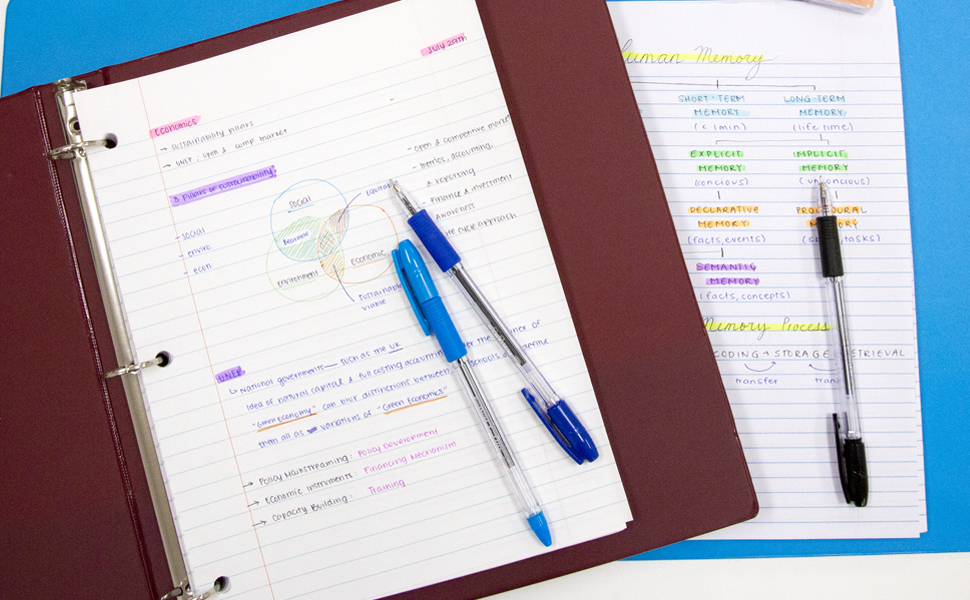 July 29th
Economics
→ Sustainability pillars
→ UNEP: open & comp market
3 Pillars of Sustainability
- Social
- enviro
- econ
Social
Bearable
Environment
Economic
Equitab
Sustainable
viable
- open & competitive mark
- metrics, accounting,
& reporting
- Finance & investment
Awareness
cycle approach
UNEP
↳ National governments — such as the UK
idea of natural capital & full costing accounting
"Green Economy" can blur distinctions between schools
them all as variations of "Green Economics"
→ Policy Mainstreaming: Policy Development
→ Economic instruments: Financing Mechanism
→ Capacity Building: Training
uman Memory
SHORT-TERM
MEMORY
(<1min)
LONG TERM
MEMORY
(life time)
EXPLICIT
MEMORY
(concious)
IMPLICIT
MEMORY
DECLARATIVE
MEMORY
(facts, events)
tasks)
SEMANTIC
MEMORY
(facts, concepts)
Memory Process
CODING → STORAGE ETRIEVAL
transfer
tran